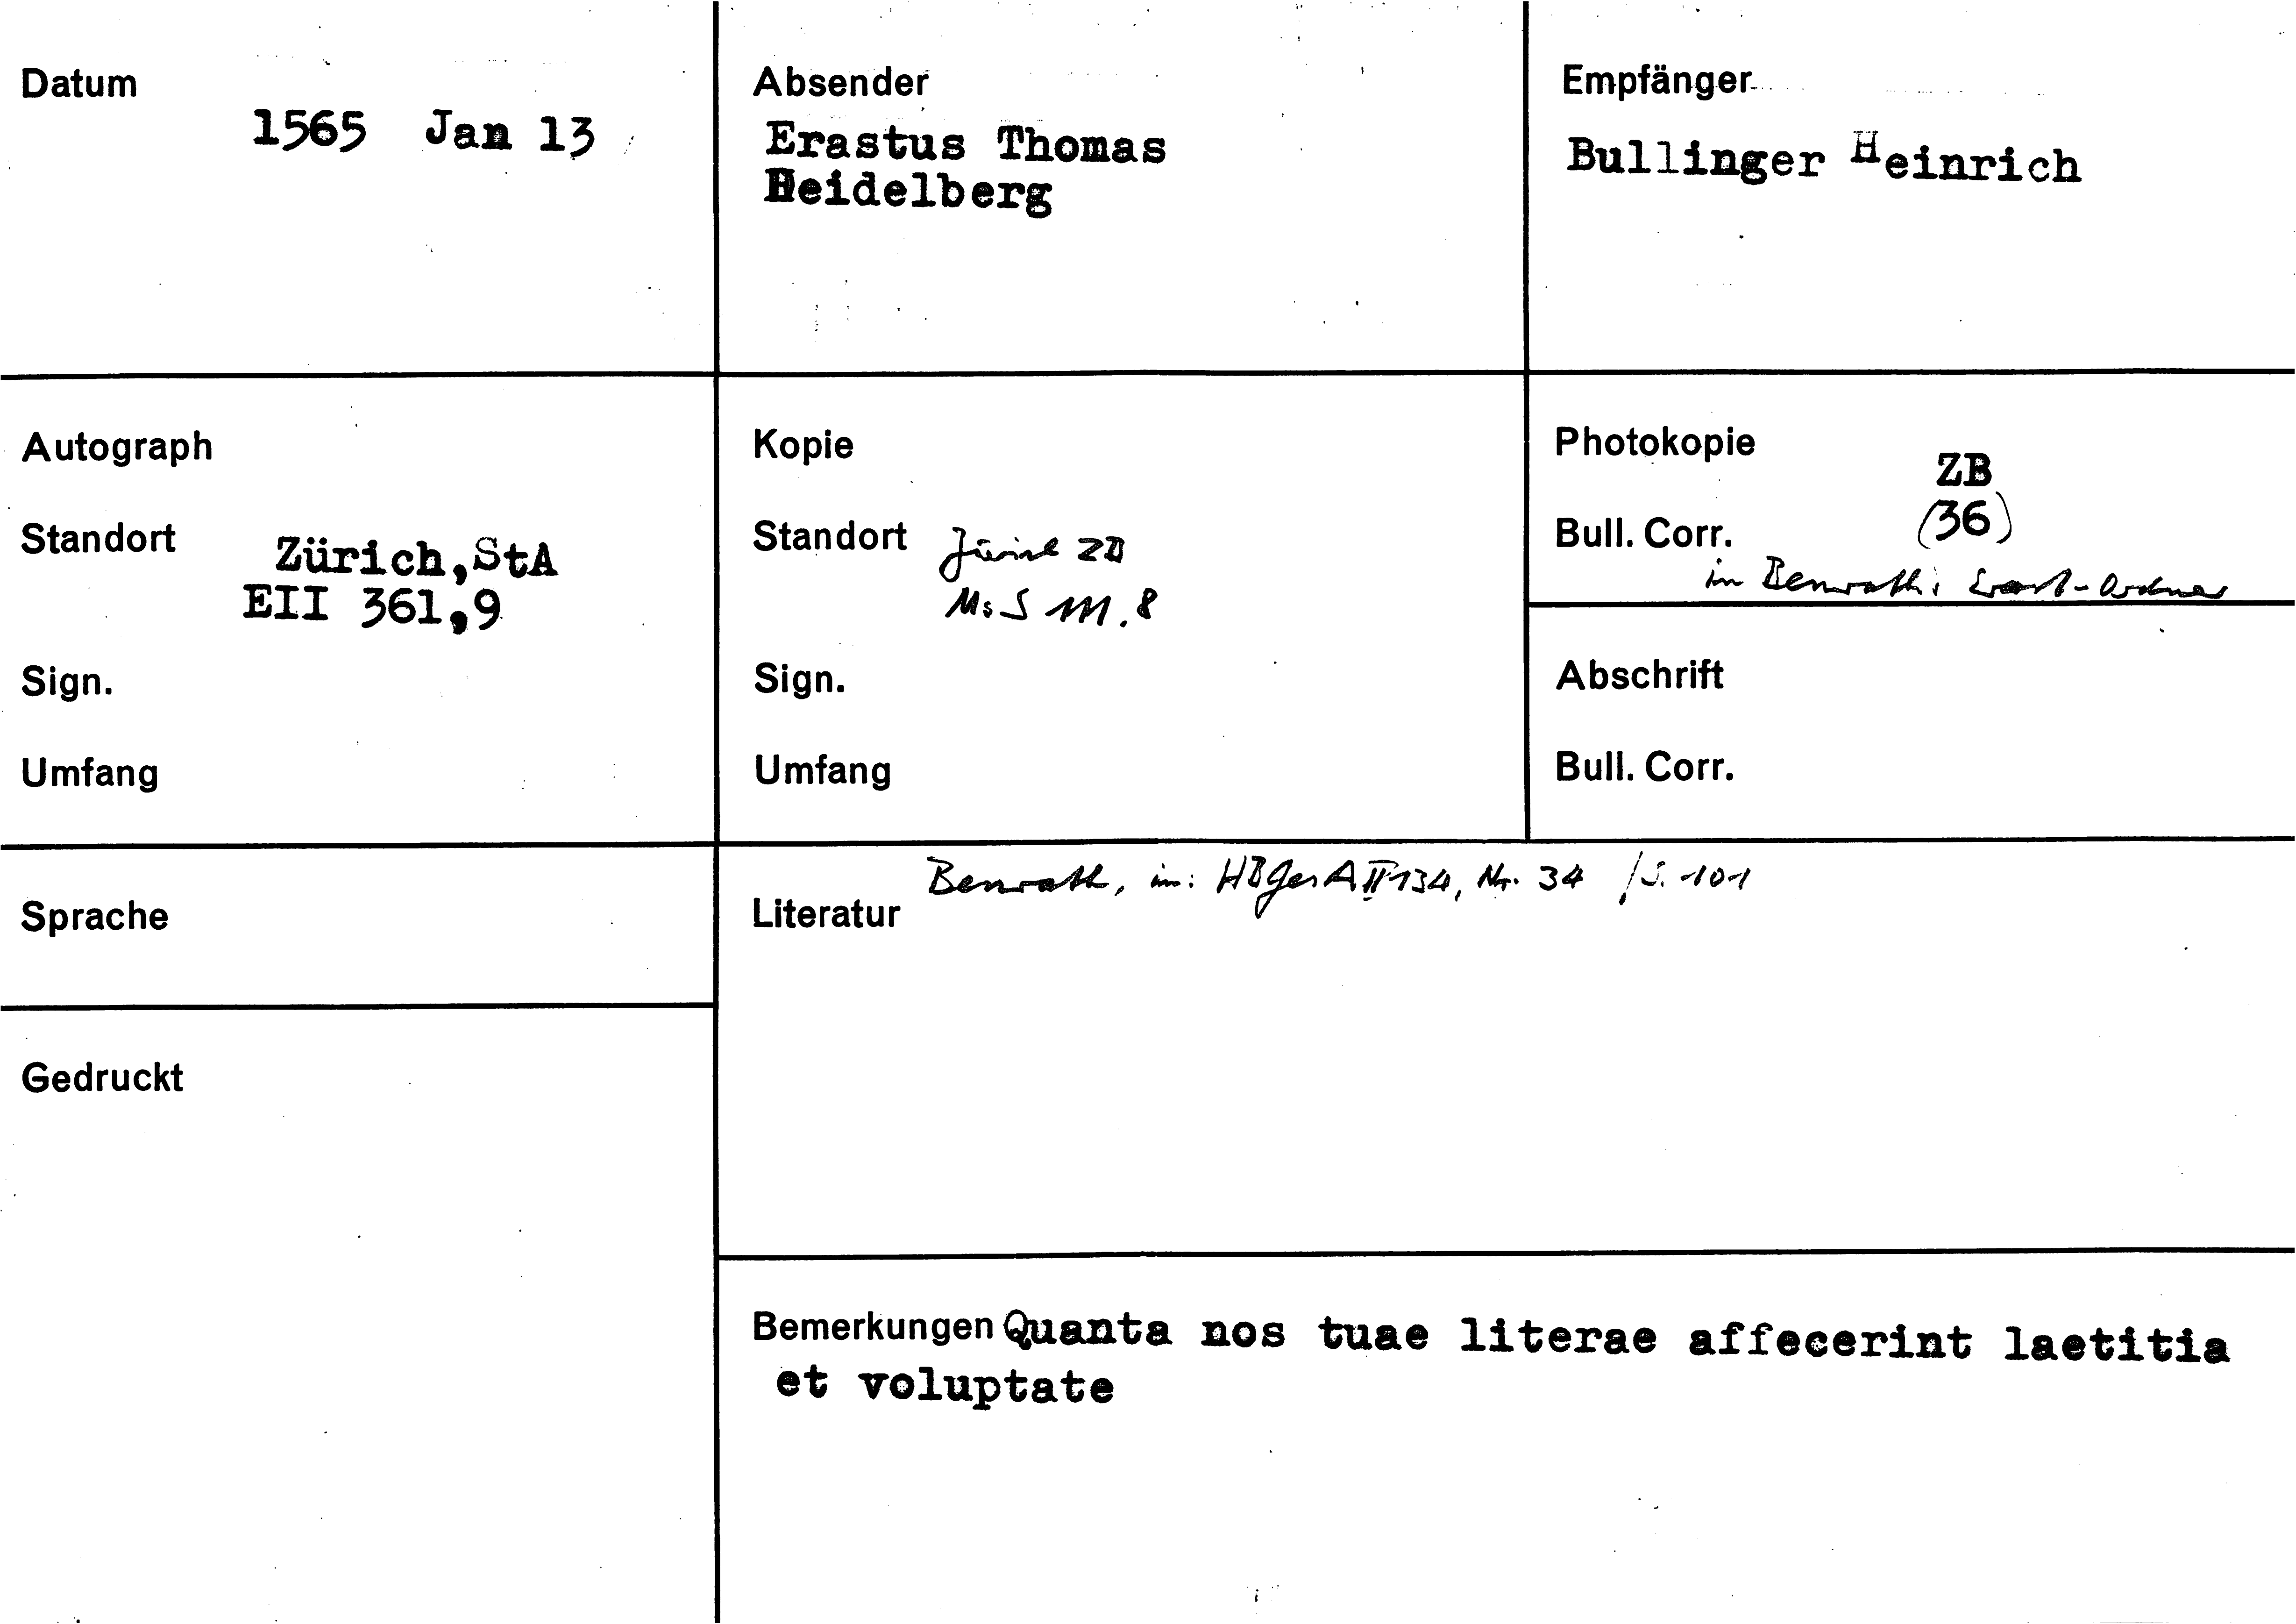 Datum
1565 Jan 13
Absender
Erastus Thomas
Heidelberg
Empfänger
Bullinger Heinrich
Autograph
Standort
Zürich,StA
EII 361,9
Sign.
Umfang
Kopie
Standort Zürich ZB
Ms S 111.8
Sign.
Umfang
Photokopie
ZB
Bull. Corr. (36)
in Benrath: Erast-Ordner
Abschrift
Bull. Corr.
Sprache
Gedruckt
Benrath, in: HBGesA II 134, Nr. 34 / S. 101
Literatur
Bemerkungen Quanta nos tuae literae affecerint laetitia
et voluptate